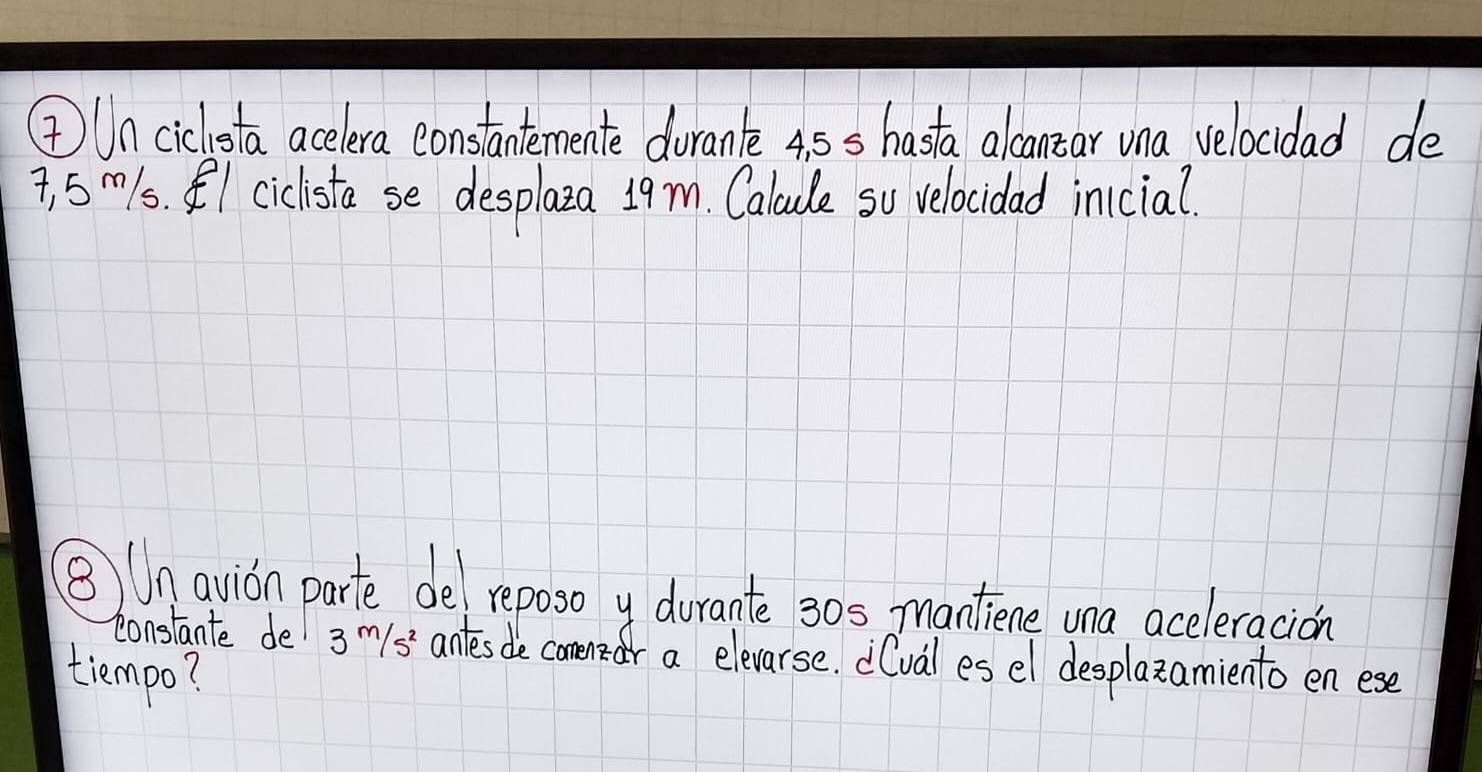 ⑦ Un ciclista acelera constantemente durante 4,5 s hasta alcanzar una velocidad de
7,5 m/s. El ciclista se desplaza 19 m. Calcule su velocidad inicial.
⑧ Un avión parte del reposo y durante 30s mantiene una aceleración
constante de 3 m/s² antes de comenzar a elevarse. ¿Cuál es el desplazamiento en ese
tiempo?